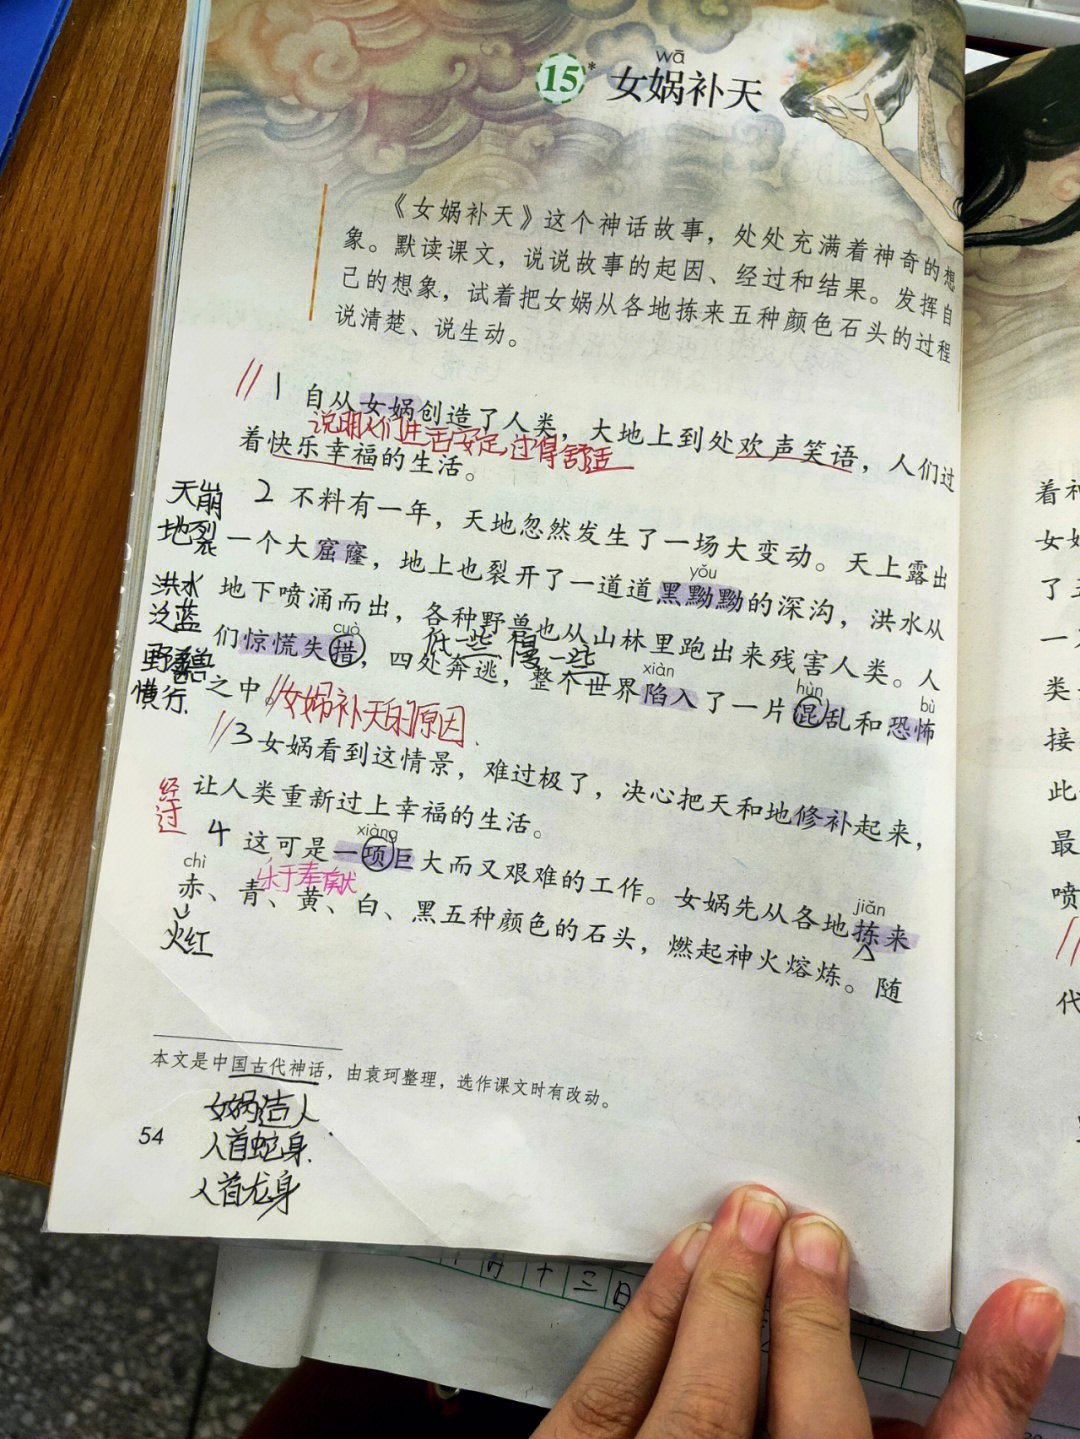 wā
15* 女娲补天
《女娲补天》这个神话故事，处处充满着神奇的想
象。默读课文，说说故事的起因、经过和结果。发挥自
己的想象，试着把女娲从各地拣来五种颜色石头的过程
说清楚、说生动。
1 自从女娲创造了人类，大地上到处欢声笑语，人们过
说明人们生活安定，过得舒适
着快乐幸福的生活。
天崩
地裂
2 不料有一年，天地忽然发生了一场大变动。天上露出
一个大窟窿，地上也裂开了一道道黑黝黝的深沟，洪水从
yǒu
洪水
泛蓝
地下喷涌而出，各种野兽也从山林里跑出来残害人类。人
低一些 慢一些
cuò
们惊慌失措，四处奔逃，整个世界陷入了一片混乱和恐怖
xiàn
hùn
bù
野兽
横行.
之中。
女娲补天的原因.
3 女娲看到这情景，难过极了，决心把天和地修补起来，
让人类重新过上幸福的生活。
经
过
xiàng
4 这可是一项巨大而又艰难的工作。女娲先从各地拣来
jiǎn
乐于奉献
chì
赤、青、黄、白、黑五种颜色的石头，燃起神火熔炼。随
火红
本文是中国古代神话，由袁珂整理，选作课文时有改动。
女娲造人.
人首蛇身.
人首龙身
54
着神
女娲
了五
一
类
接
此
最
喷
代
十三日